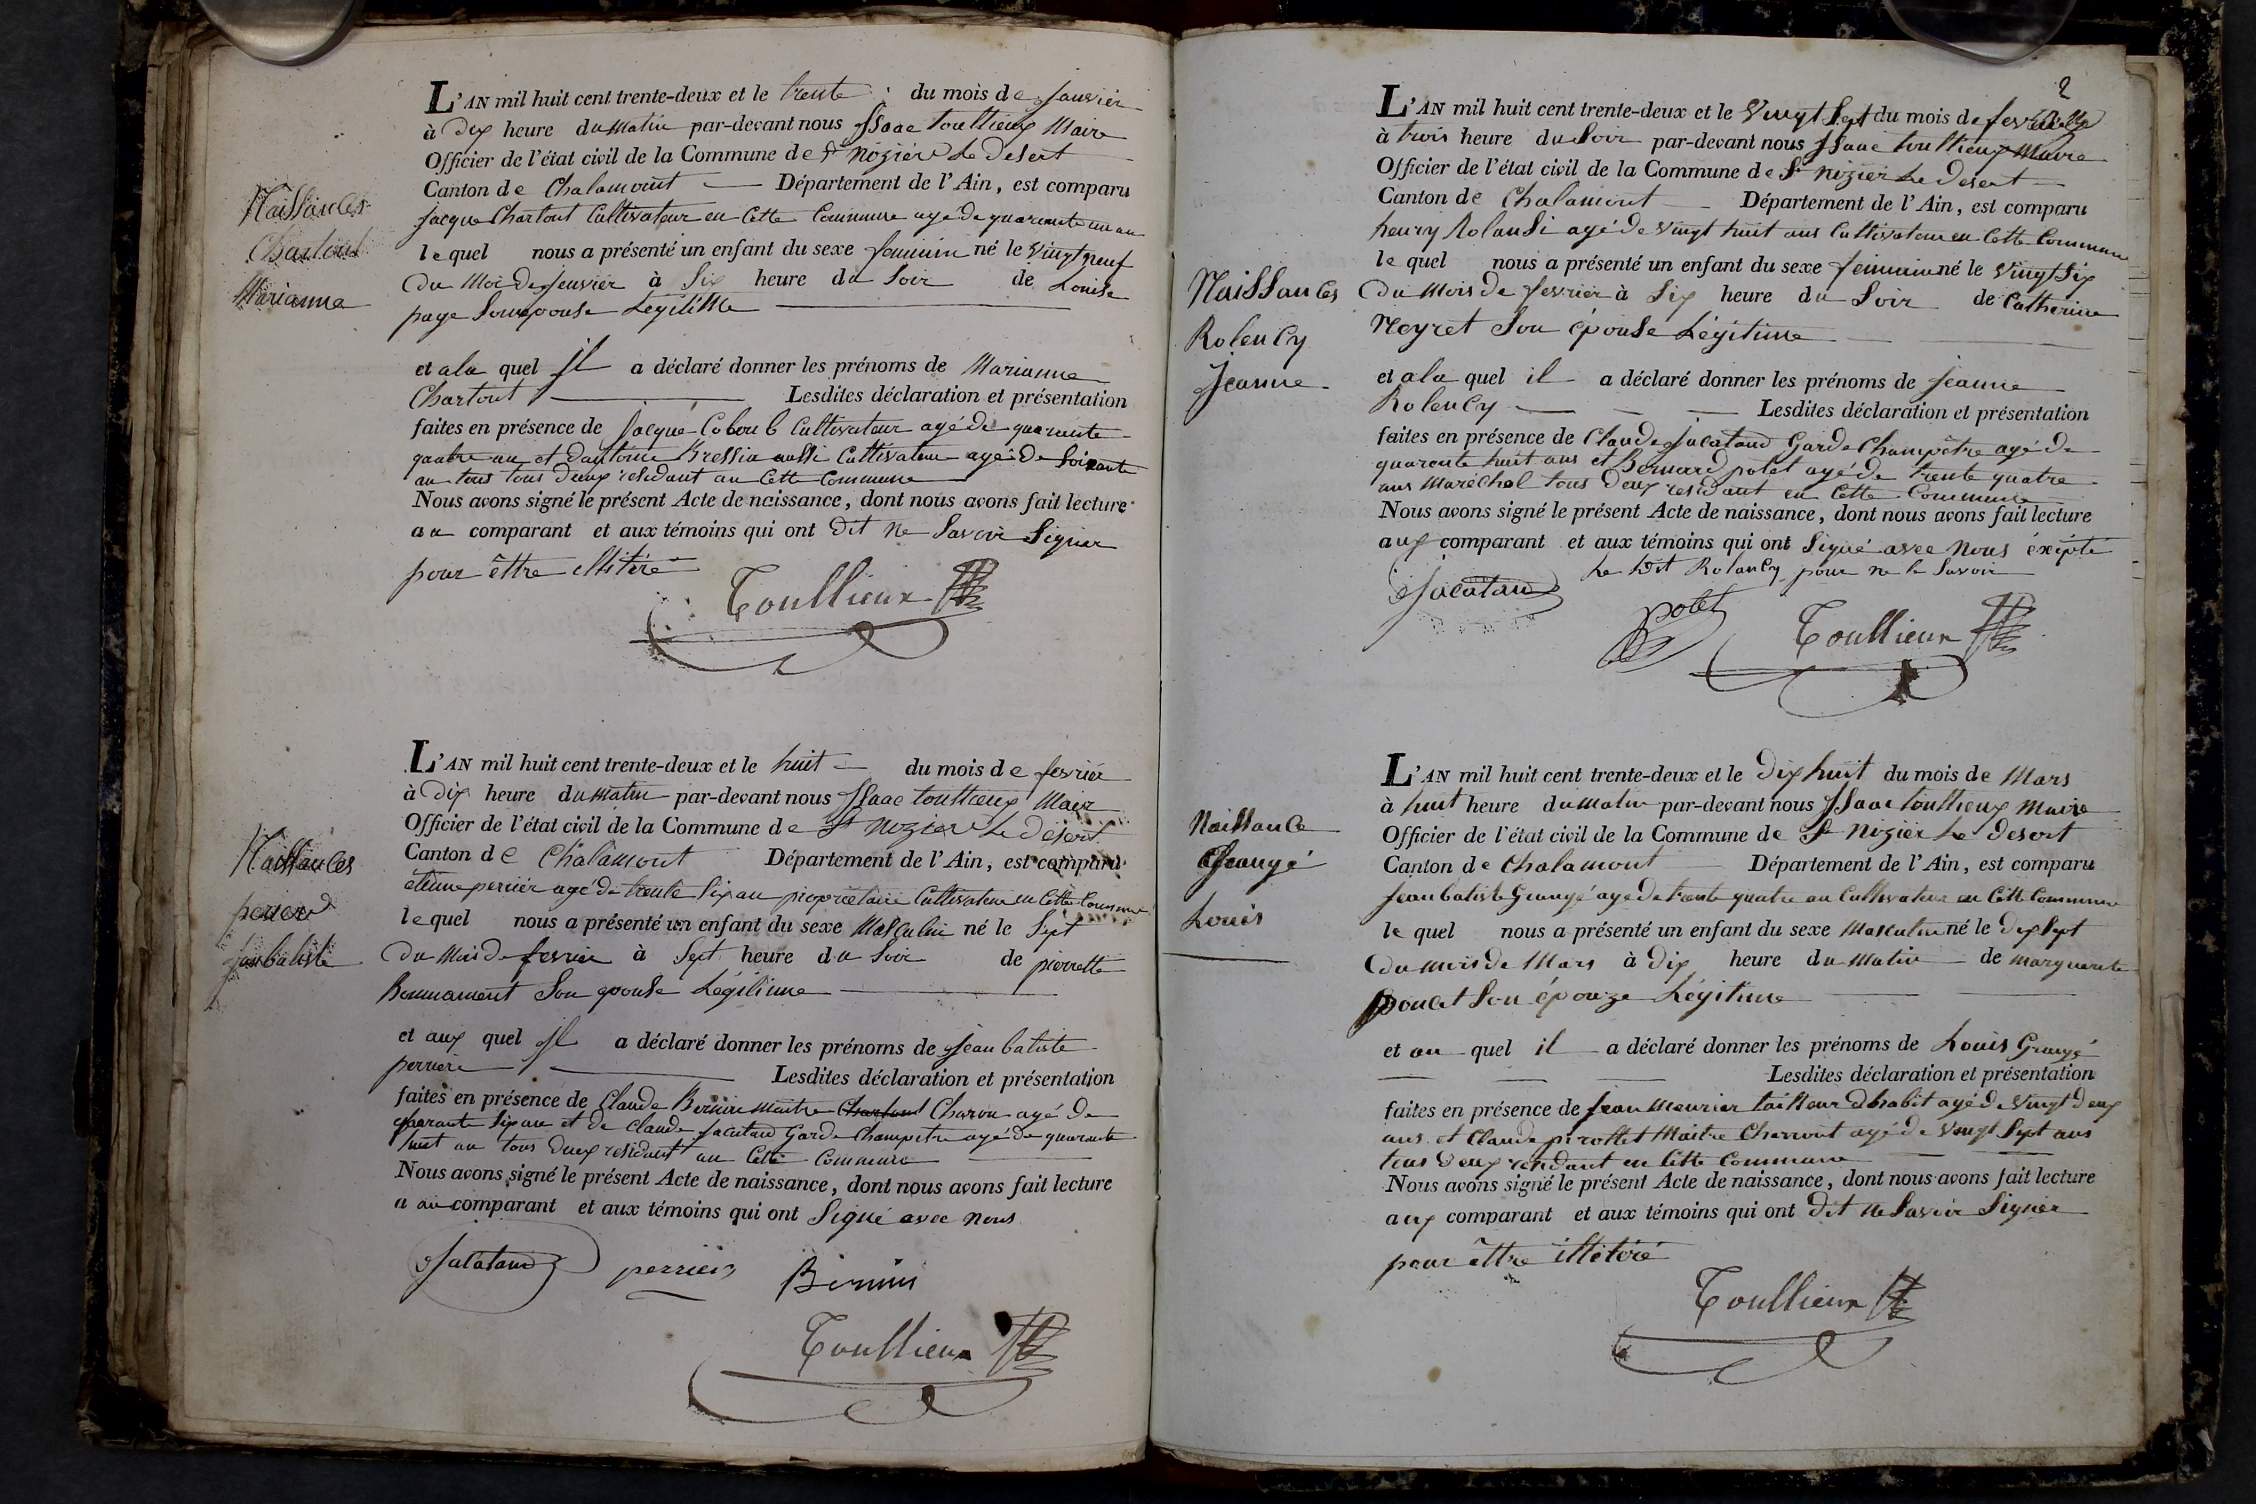 Naissances
Chartout
Marianna
L'AN mil huit cent trente-deux et le trente du mois de Janvier
à Dix heure du Matin par-devant nous Isaac toullieux Maire
Officier de l'état civil de la Commune de St Nizier Le Desert
Canton de Chalamont Département de l'Ain, est comparu
Jacque Chartout Cultivateur en Cette Commune agé de quarante un an
le quel nous a présenté un enfant du sexe feminin né le vingt neuf
du Moi de Jenvier à Six heure du Soir de Louise
page Son epouse Legitime
et a la quel Il a déclaré donner les prénoms de Marianne
Chartout Lesdites déclaration et présentation
faites en présence de Jacque Coboub Cultivateur agé de quarente
quatre an et d'antoine Bressia aussi Cultivateur agé de Soixante
an tous tous deux residant an Cette Commune
Nous avons signé le présent Acte de naissance, dont nous avons fait lecture
au comparant et aux témoins qui ont Dit ne Savoir Signer
pour êttre illitéré
Toullieux
Naissances
perier
Jean batiste
L'AN mil huit cent trente-deux et le huit du mois de fevrier
à Dix heure du Matin par-devant nous Isaac toullieux Maire
Officier de l'état civil de la Commune de St Nizier Le Desert
Canton de Chalamont Département de l'Ain, est comparu
etienne perrier agé de trente Six an propriétaire Cultivateur en Cette Commune
le quel nous a présenté un enfant du sexe Masculin né le Sept
du Mois de fevrier à Sept heure du Soir de pierrette
Bonnament Son epouse Légitime
et aux quel Il a déclaré donner les prénoms de Jean batiste
perriere Lesdites déclaration et présentation
faites en présence de Claude Bernin Maitre Chartout Charon agé de
quarante Six an et de Claude Jacataud Garde Champetre agé de quarante
huit an tous deux residant an Cette Commune
Nous avons signé le présent Acte de naissance, dont nous avons fait lecture
a au comparant et aux témoins qui ont Signé avec nous
Jacataud perrier Bernin
Toullieux
2
Naissances
Rolency
Jeanne
L'AN mil huit cent trente-deux et le Vingt Sept du mois de fevrier
à trois heure du Soir par-devant nous Isaac toullieux Maire
Officier de l'état civil de la Commune de St Nizier Le Desert
Canton de Chalamont Département de l'Ain, est comparu
henry Rolandi agé de vingt huit ans Cultivateur en Cette Commune
le quel nous a présenté un enfant du sexe feminin né le Vingt Six
du Mois de fevrier à Six heure du Soir de Catherine
Neyret Son épouse Légitime
et a la quel il a déclaré donner les prénoms de Jeanne
Rolency Lesdites déclaration et présentation
faites en présence de Claude Jacataud Garde Champêtre agé de
quarente huit ans et Bernard polet agé de trente quatre
ans Maréchal tous deux residant en Cette Commune
Nous avons signé le présent Acte de naissance, dont nous avons fait lecture
aux comparant et aux témoins qui ont Signé avec Nous éxépté
Le Dit Rolancy pour ne le Savoir
Jacataud
polet
Toullieux
Naissance
Grangé
Louis
L'AN mil huit cent trente-deux et le Dix huit du mois de Mars
à huit heure du Matin par-devant nous Isaac toullieux Maire
Officier de l'état civil de la Commune de St Nizier Le Desert
Canton de Chalamont Département de l'Ain, est comparu
Jean batiste Grangé agé de trente quatre an Cultivateur en Cette Commune
le quel nous a présenté un enfant du sexe Masculin né le Dix Sept
du Mois de Mars à Dix heure du Matin de Marguerite
poncet Son épouze Légitime
et au quel il a déclaré donner les prénoms de Louis Grangé
Lesdites déclaration et présentation
faites en présence de Jean Meunier tailleur d'habit agé de Vingt Deux
ans et Claude pirollet Maitre Charront agé de Vingt Sept ans
tous Deux residant en Cette Commune
Nous avons signé le présent Acte de naissance, dont nous avons fait lecture
aux comparant et aux témoins qui ont Dit ne Savoir Signer
pour êttre illétéré
Toullieux